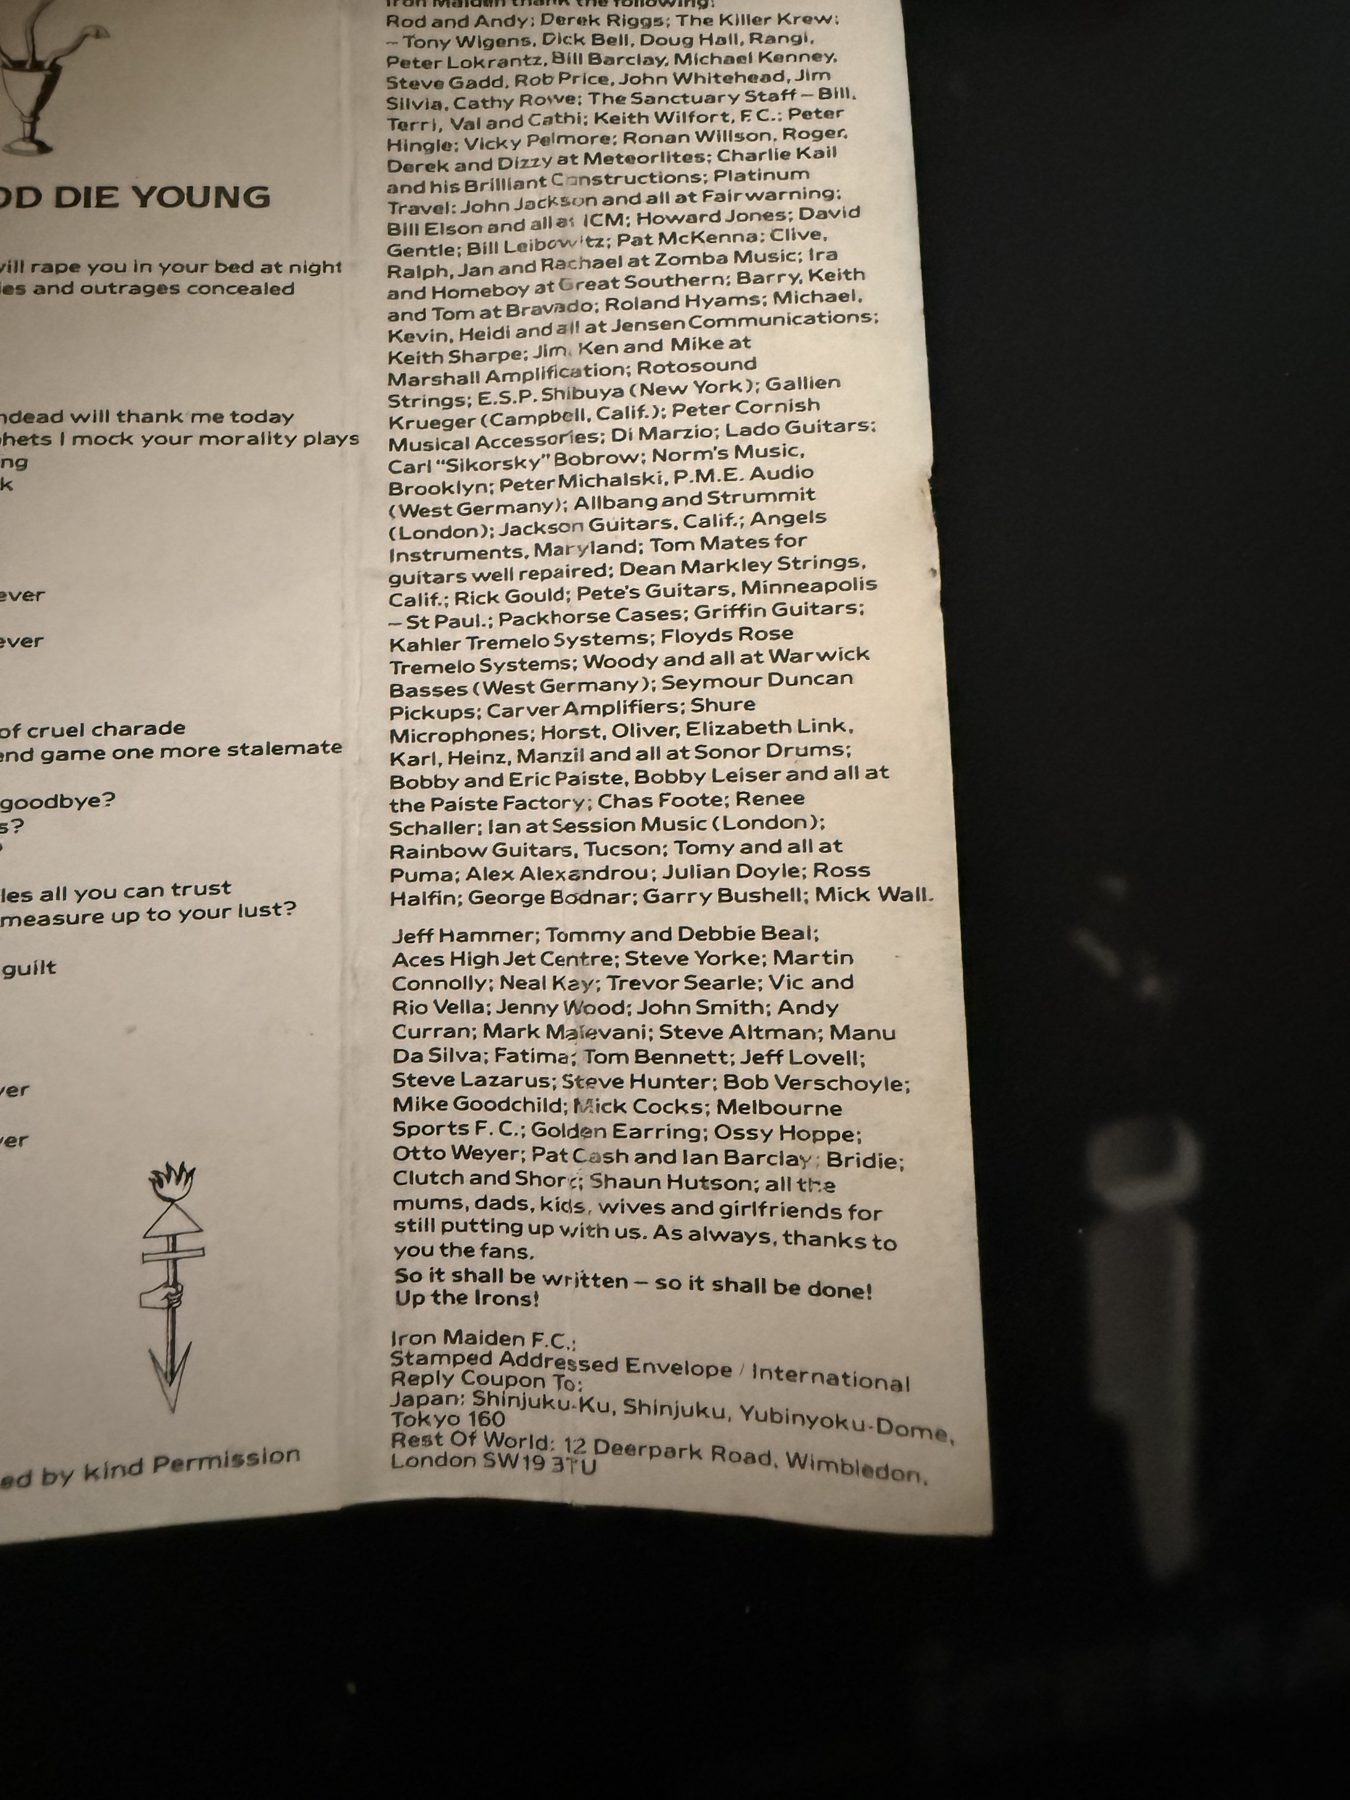 OD DIE YOUNG
will rape you in your bed at night
ies and outrages concealed
ndead will thank me today
hets I mock your morality plays
ng
k
ever
ever
of cruel charade
end game one more stalemate
goodbye?
s?
?
les all you can trust
measure up to your lust?
guilt
ver
ver
ed by kind Permission
Iron Maiden thank the following:
Rod and Andy; Derek Riggs; The Killer Krew:
– Tony Wigens, Dick Bell, Doug Hall, Rangi,
Peter Lokrantz, Bill Barclay, Michael Kenney,
Steve Gadd, Rob Price, John Whitehead, Jim
Silvia, Cathy Rowe; The Sanctuary Staff – Bill,
Terri, Val and Cathi; Keith Wilfort, F.C.; Peter
Hingle; Vicky Pelmore; Ronan Willson, Roger,
Derek and Dizzy at Meteorlites; Charlie Kail
and his Brilliant Constructions; Platinum
Travel; John Jackson and all at Fairwarning;
Bill Elson and all at ICM; Howard Jones; David
Gentle; Bill Leibowitz; Pat McKenna; Clive,
Ralph, Jan and Rachael at Zomba Music; Ira
and Homeboy at Great Southern; Barry, Keith
and Tom at Bravado; Roland Hyams; Michael,
Kevin, Heidi and all at Jensen Communications;
Keith Sharpe; Jim, Ken and Mike at
Marshall Amplification; Rotosound
Strings; E.S.P. Shibuya (New York); Gallien
Krueger (Campbell, Calif.); Peter Cornish
Musical Accessories; Di Marzio; Lado Guitars;
Carl "Sikorsky" Bobrow; Norm's Music,
Brooklyn; Peter Michalski, P.M.E. Audio
(West Germany); Allbang and Strummit
(London); Jackson Guitars, Calif.; Angels
Instruments, Maryland; Tom Mates for
guitars well repaired; Dean Markley Strings,
Calif.; Rick Gould; Pete's Guitars, Minneapolis
– St Paul.; Packhorse Cases; Griffin Guitars;
Kahler Tremelo Systems; Floyds Rose
Tremelo Systems; Woody and all at Warwick
Basses (West Germany); Seymour Duncan
Pickups; Carver Amplifiers; Shure
Microphones; Horst, Oliver, Elizabeth Link,
Karl, Heinz, Manzil and all at Sonor Drums;
Bobby and Eric Paiste, Bobby Leiser and all at
the Paiste Factory; Chas Foote; Renee
Schaller; Ian at Session Music (London);
Rainbow Guitars, Tucson; Tomy and all at
Puma; Alex Alexandrou; Julian Doyle; Ross
Halfin; George Bodnar; Garry Bushell; Mick Wall.
Jeff Hammer; Tommy and Debbie Beal;
Aces High Jet Centre; Steve Yorke; Martin
Connolly; Neal Kay; Trevor Searle; Vic and
Rio Vella; Jenny Wood; John Smith; Andy
Curran; Mark Malevani; Steve Altman; Manu
Da Silva; Fatima; Tom Bennett; Jeff Lovell;
Steve Lazarus; Steve Hunter; Bob Verschoyle;
Mike Goodchild; Mick Cocks; Melbourne
Sports F. C.; Golden Earring; Ossy Hoppe;
Otto Weyer; Pat Cash and Ian Barclay; Bridie;
Clutch and Shorc; Shaun Hutson; all the
mums, dads, kids, wives and girlfriends for
still putting up with us. As always, thanks to
you the fans.
So it shall be written – so it shall be done!
Up the Irons!
Iron Maiden F.C.:
Stamped Addressed Envelope / International
Reply Coupon To:
Japan: Shinjuku-Ku, Shinjuku, Yubinyoku-Dome,
Tokyo 160
Rest Of World: 12 Deerpark Road, Wimbledon,
London SW19 3TU